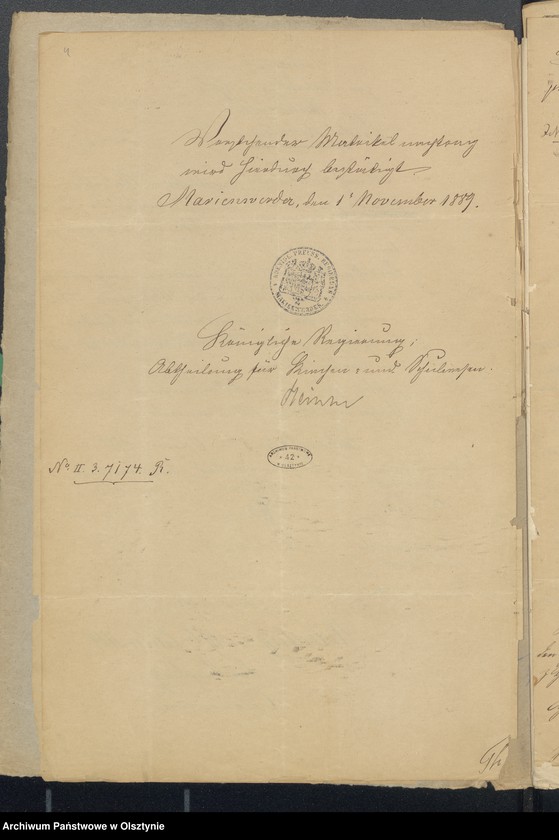 4
Vorstehender Matrikelnachtrag
wird hierdurch bestätigt.
Marienwerder, den 1t November 1889.
KOENIGL. PREUSS. REGIERUNG
MARIENWERDER
Königliche Regierung,
Abtheilung für Kirchen- und Schulwesen.
42
No II. 3. 7174. R.
Archiwum Państwowe w Olsztynie